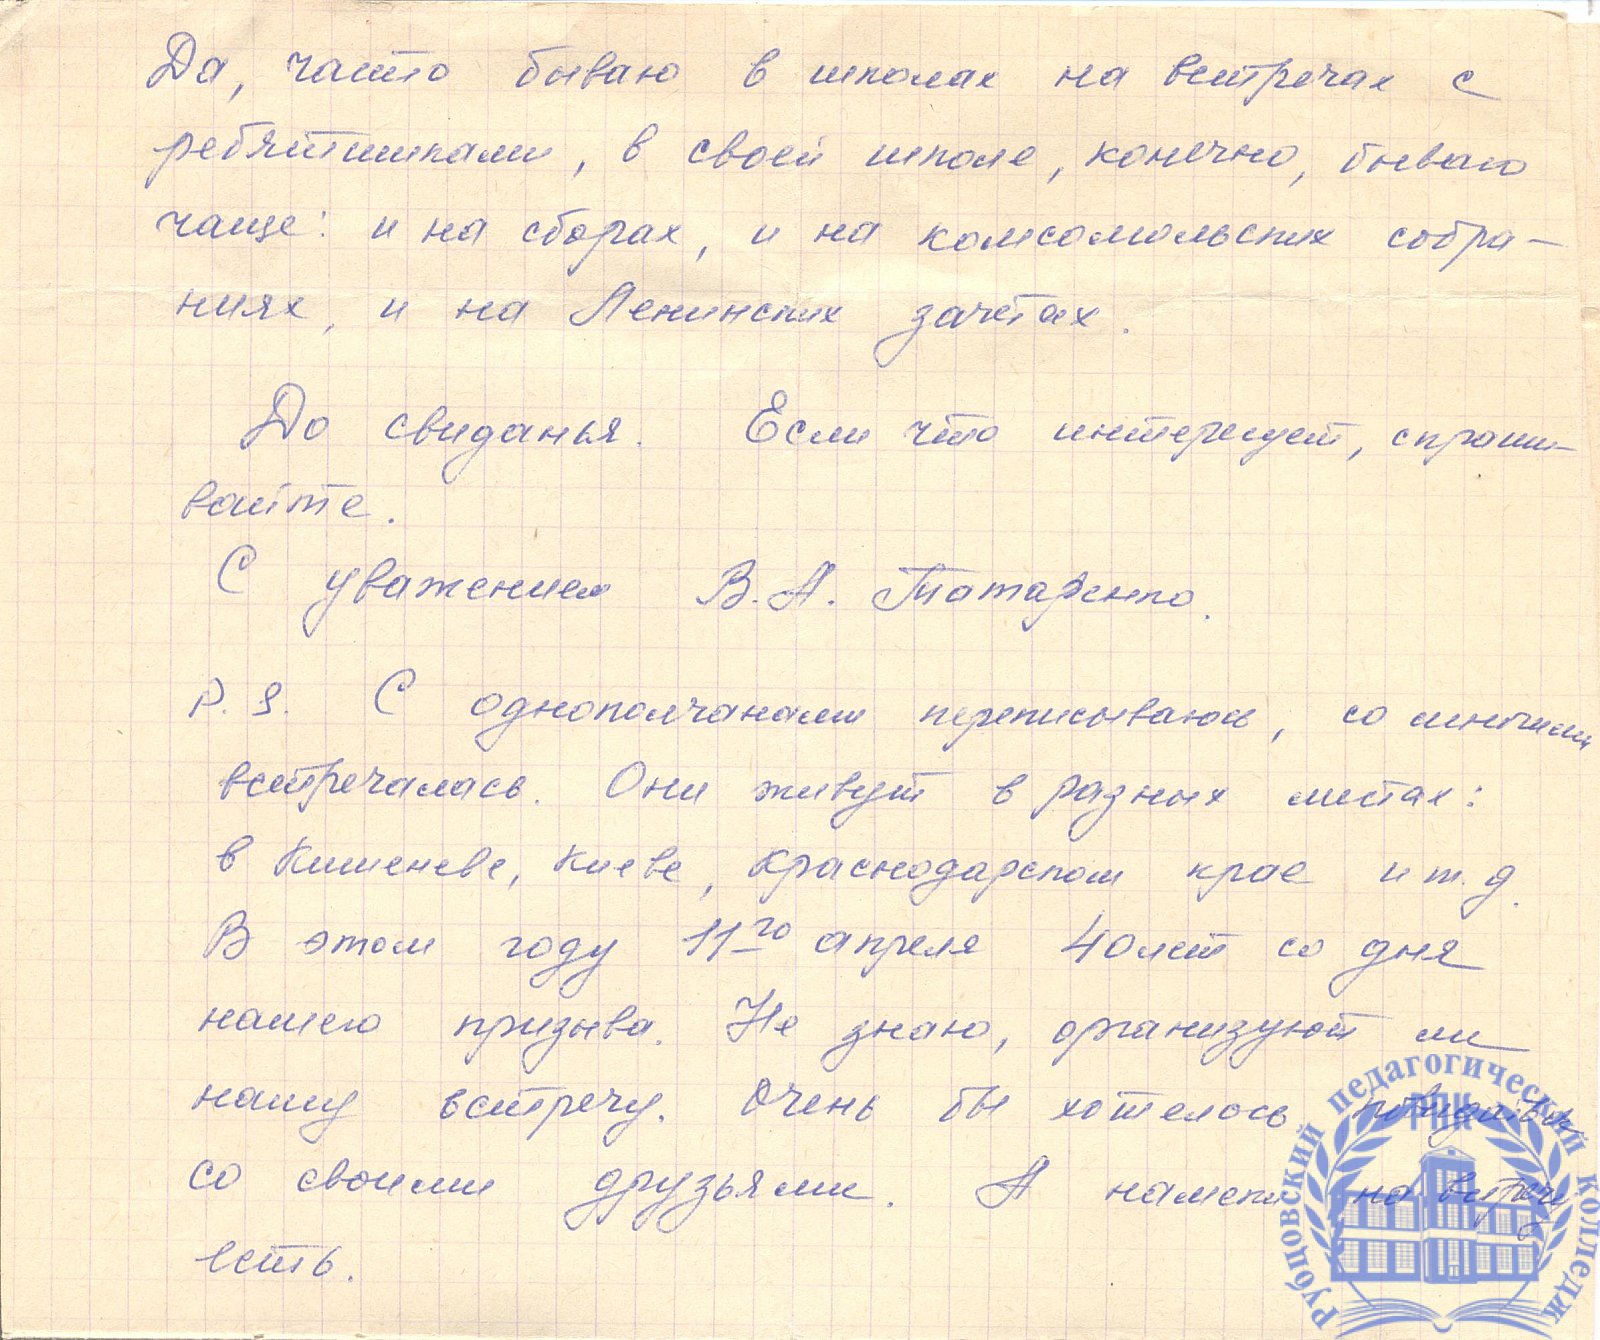 Да, часто бываю в школах на встречах с
ребятишками, в своей школе, конечно, бываю
чаще: и на сборах, и на комсомольских собра-
ниях, и на Ленинских зачётах.
До свиданья. Если что интересует, спраши-
вайте.
С уважением В.А. Татаренко.
P.S. С однополчанами переписываюсь, со многими
встречалась. Они живут в разных местах:
в Кишеневе, Киеве, Краснодарском крае и т.д.
В этом году 11го апреля 40 лет со дня
нашего призыва. Не знаю, организуют ли
нашу встречу. Очень бы хотелось повидаться
со своими друзьями. А намёки на встречу
есть.
Рубцовский педагогический колледж
РПК